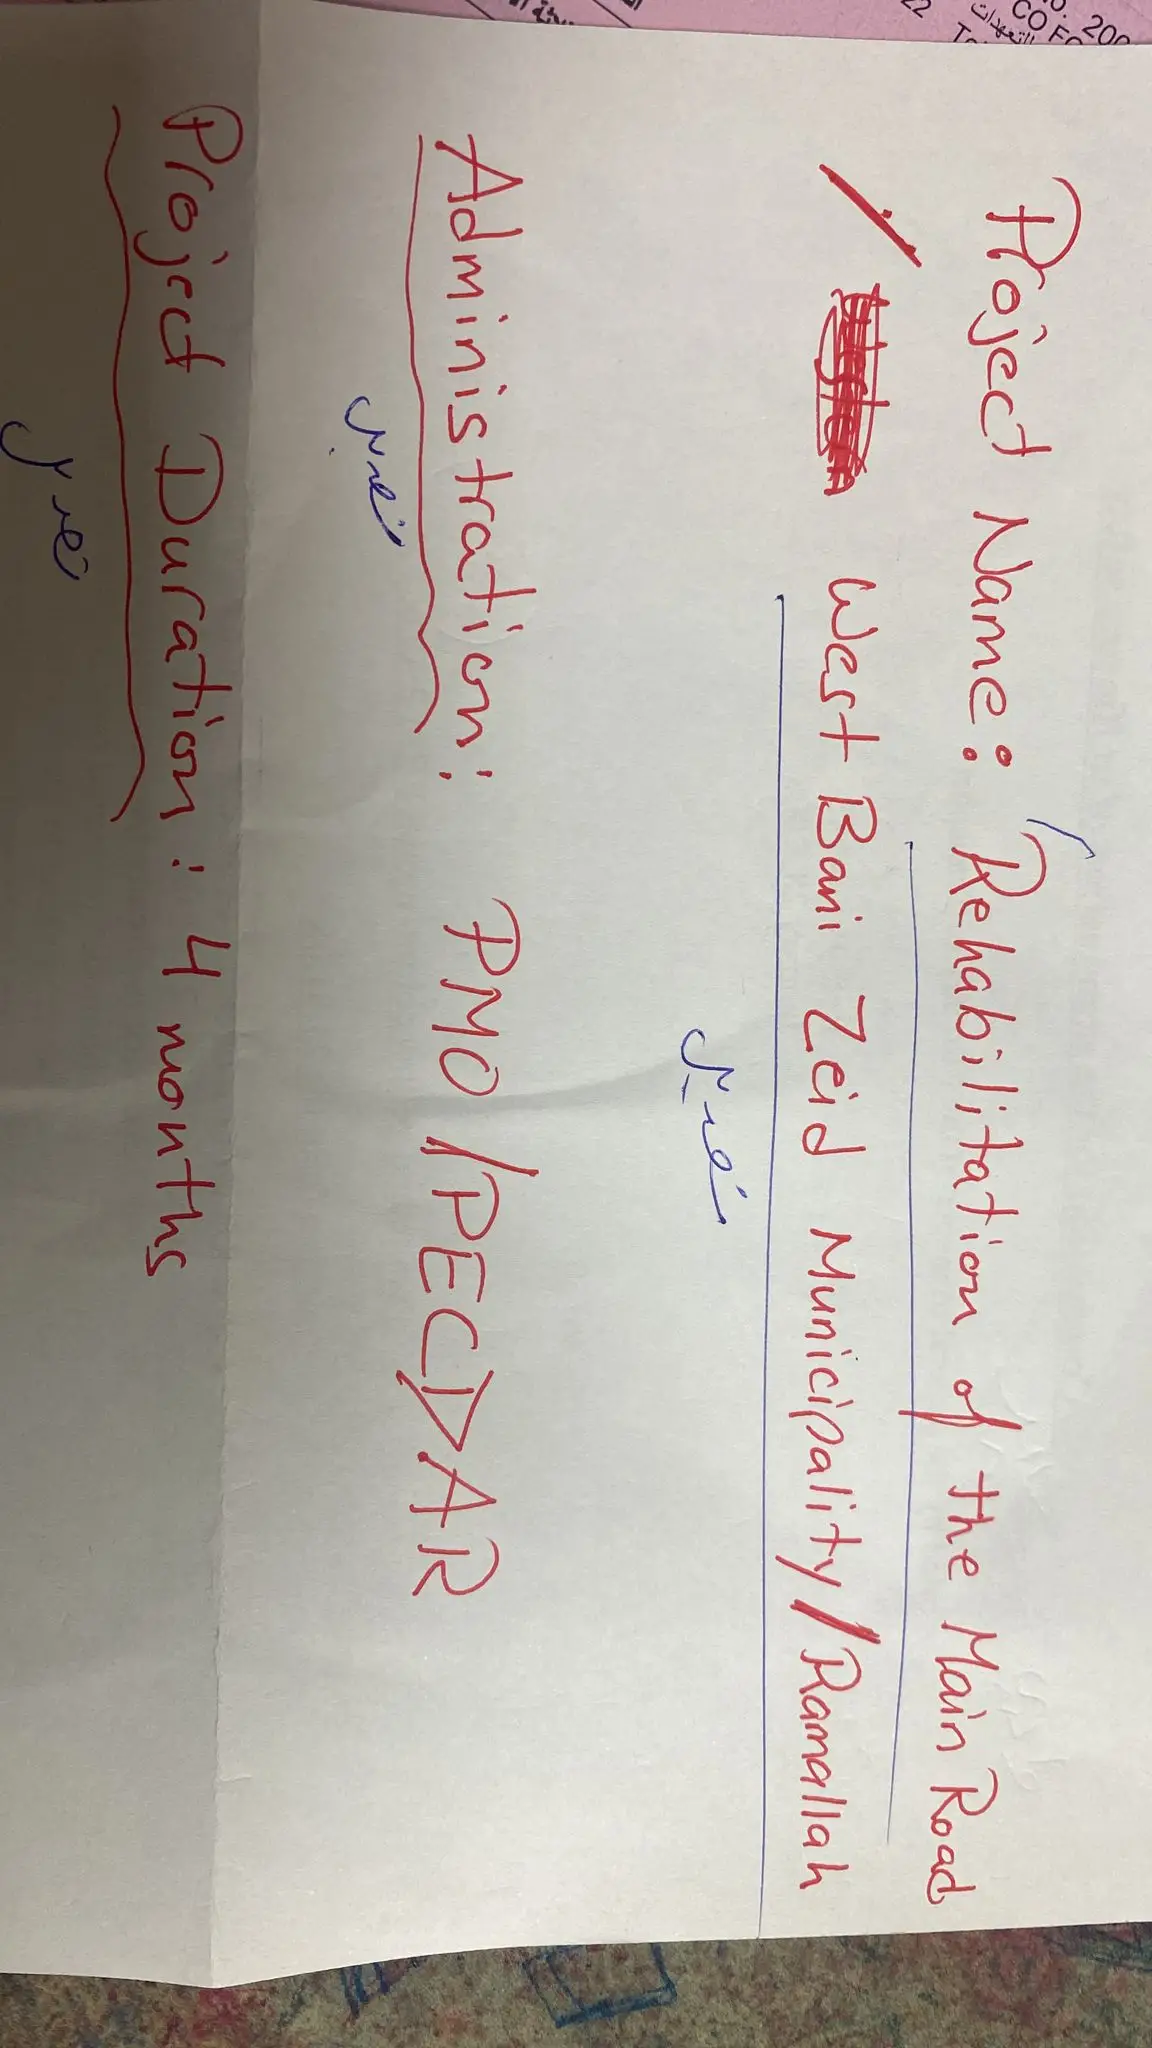 Project Name: Rehabilitation of the Main Road
/ West Bani Zeid Municipality/Ramallah
Administration: PMO/PECDAR
Project Duration: 4 months